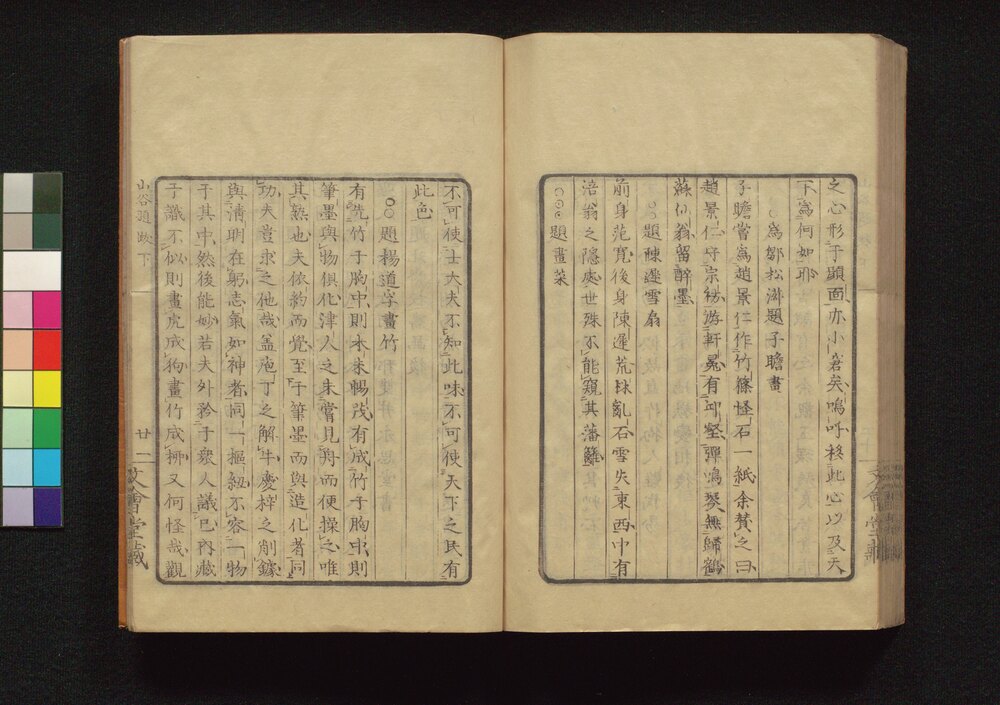 之心形于顕面亦小瘥矣嗚呼移此心以及天
下爲何如耶
○爲鄒松滋題子瞻畫
子瞻嘗爲趙景仁作竹篠怪石一紙余贊之曰
趙景仁守宗祊游軒冕有丘壑彈鳴琴無歸鶴
蘇仙翁留醉墨
○○題陳暹雪扇
前身范寛後身陳暹荒林亂石雪失東西中有
涪翁之隱處世殊不能窺其藩籬
○○○題畫菜
不可使士大夫不知此味不可使天下之民有
此色
○○題楊道孚畫竹
有先竹于胸中則本末暢茂有成竹于胸中則
筆墨與物俱化津人之未嘗見舟而便操之唯
其熟也夫依約而覺至于筆墨而與造化者同
功夫豈求之他哉蓋庖丁之解牛慶梓之削鐻
與清明在躬志氣如神者同一樞紐不容一物
于其中然後能妙若夫外矜于衆人議已内藏
于識不似則畫虎成狗畫竹成柳又何怪哉觀
山谷題跋下
廿一
文會堂藏